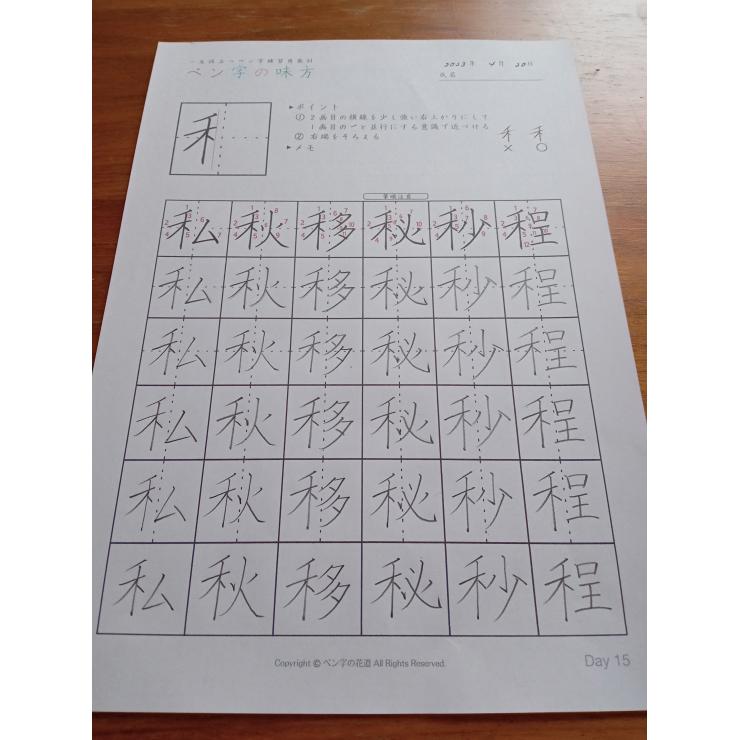 一生役立つペン字練習用教材
ペン字の味方
2023年 4月 20日
氏名
禾
▶ポイント
① 2画目の横線を少し強い右上がりにして
1画目の「一」と並行にする意識で近づける
② 右端をそろえる
▶メモ
禾 禾
× ○
筆順注意
私 秋 移 秘 秒 程
私 秋 移 秘 秒 程
私 秋 移 秘 秒 程
私 秋 移 秘 秒 程
私 秋 移 秘 秒 程
私 秋 移 秘 秒 程
Copyright © ペン字の花道 All Rights Reserved.
Day 15